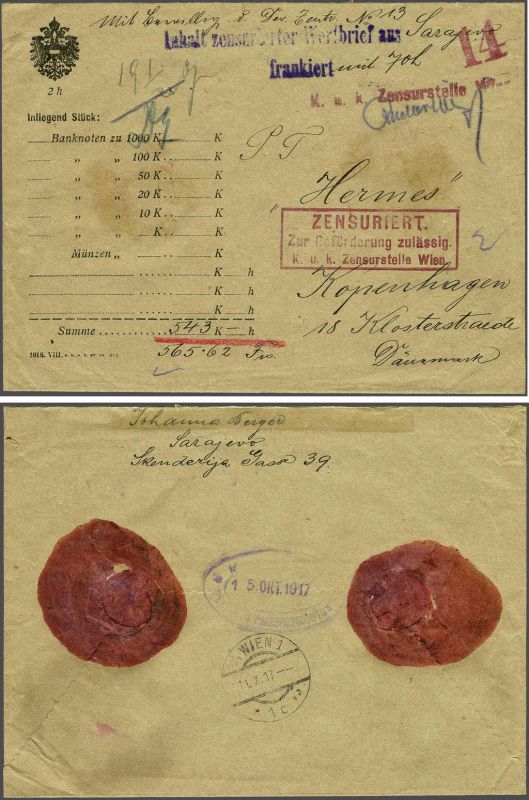 Mit Bewillig. d. Dev. Zentr. No 13
Sarajevo
Inhalt zensurierter Wertbrief aus
frankiert mit 70h
14
K. u. k. Zensurstelle
2 h
Inliegend Stück:
Banknoten zu 1000 K K
„ „ 100 K K
„ „ 50 K K
„ „ 20 K K
„ „ 10 K K
„ „ K K
Münzen „ K h
K h
K h
K h
Summe 543 K — h
565·62 Frs.
1916. VIII.
P. T.
"Hermes"
ZENSURIERT.
Zur Beförderung zulässig.
K. u. k. Zensurstelle Wien
2
Kopenhagen
18 Klosterstraede
Dänemark
Johanna Berger
Sarajevo
Skenderija Gasse 39.
15. OKT. 1917
WIEN 1
X. 17
1 c